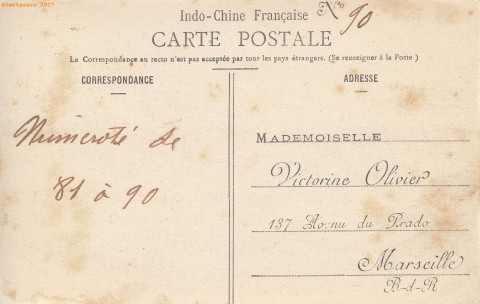 Indo-Chine Française
90
CARTE POSTALE
La Correspondance au recto n'est pas acceptée par tous les pays étrangers. (Se renseigner à la Poste.)
CORRESPONDANCE
ADRESSE
Numéroté de
81 à 90
MADEMOISELLE
Victorine Olivier
137 Avenu du Prado
Marseille
B-d-R